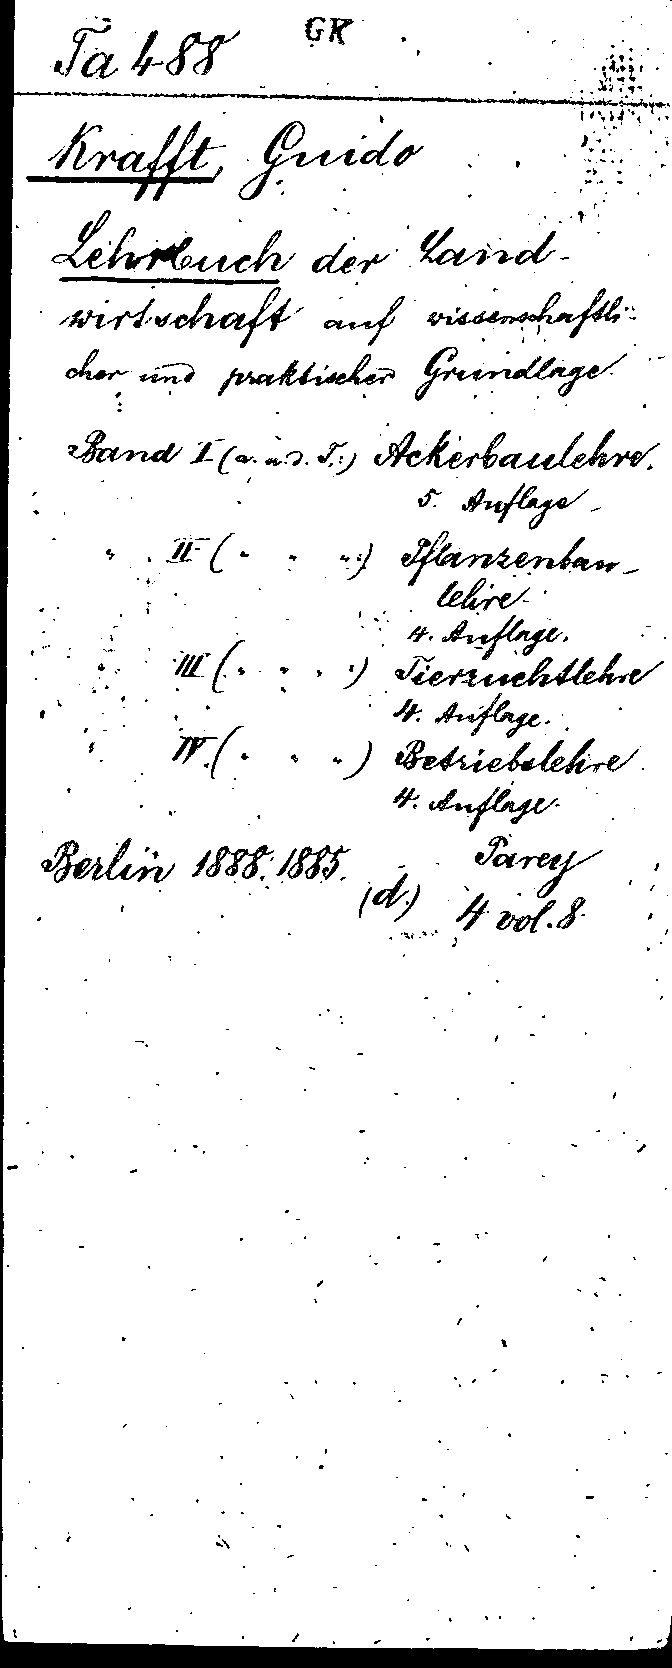 GK
Ta 488
Krafft, Guido
Lehrbuch der Land-
wirtschaft auf wissenschaftli-
cher und praktischer Grundlage.
Band I (a. u. d. T.:) Ackerbaulehre.
5. Auflage
" II ( " " ":) Pflanzenbau-
lehre.
4. Auflage.
" III ( " " " ") Tierzuchtlehre
4. Auflage.
" IV. ( " " ") Betriebslehre
4. Auflage.
Berlin 1888. 1885. Parey
(d.) 4 vol. 8.